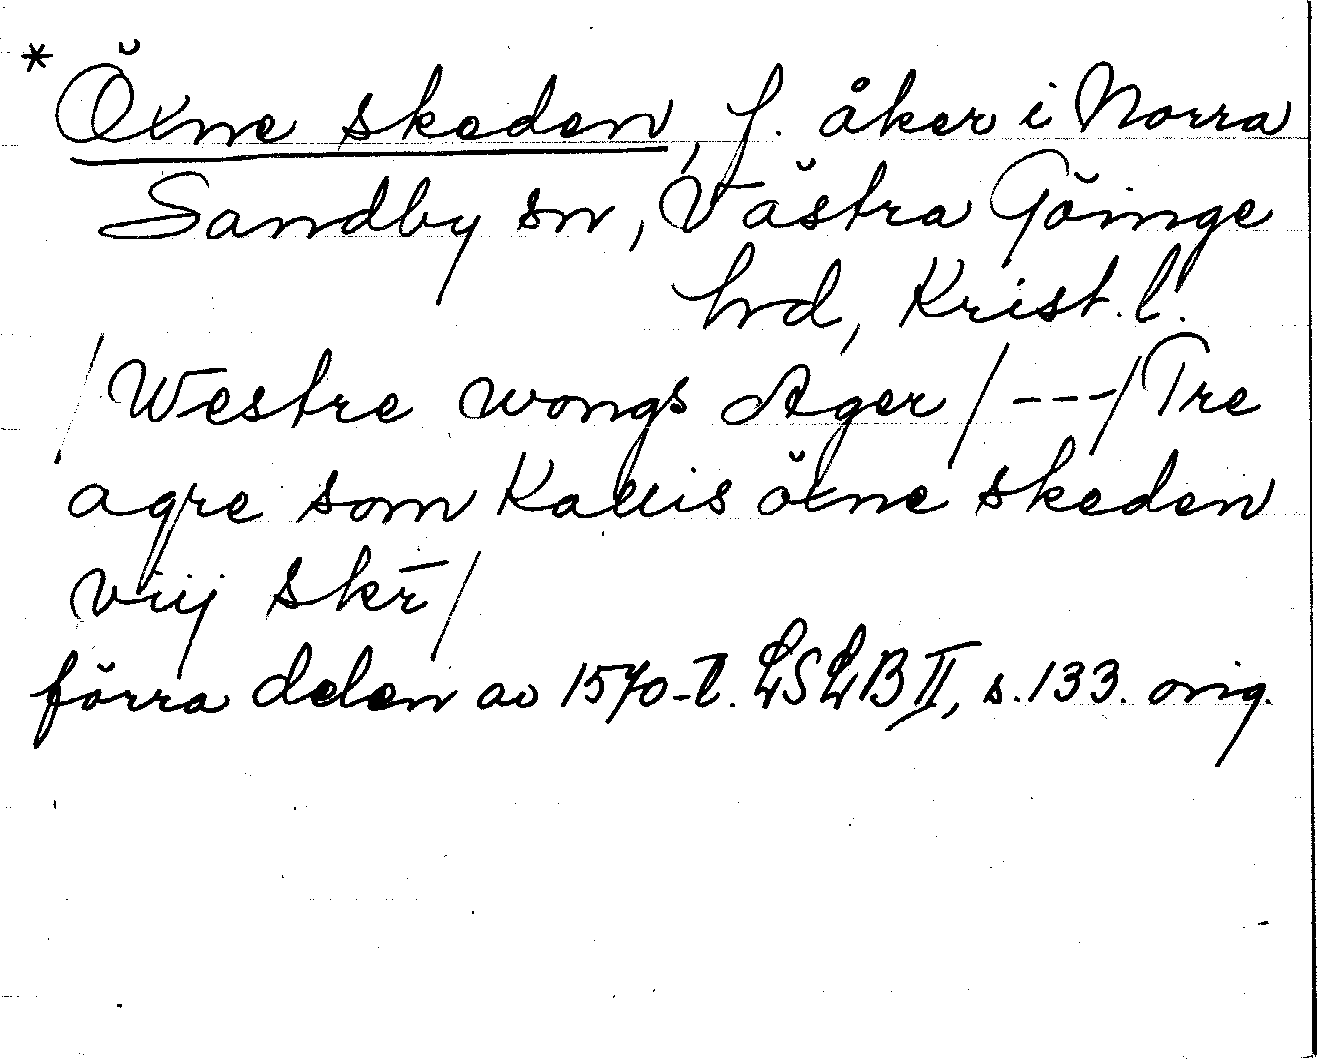 * Öxne skeden, f. åker i Norra
Sandby sn, Västra Göinge
hrd, Krist. l.
/Westre wongs Ager/---/Tre
agre som Kallis öxne skeden
viij skr̄/
förra delen av 1570-t. LSLB II, s. 133. orig.